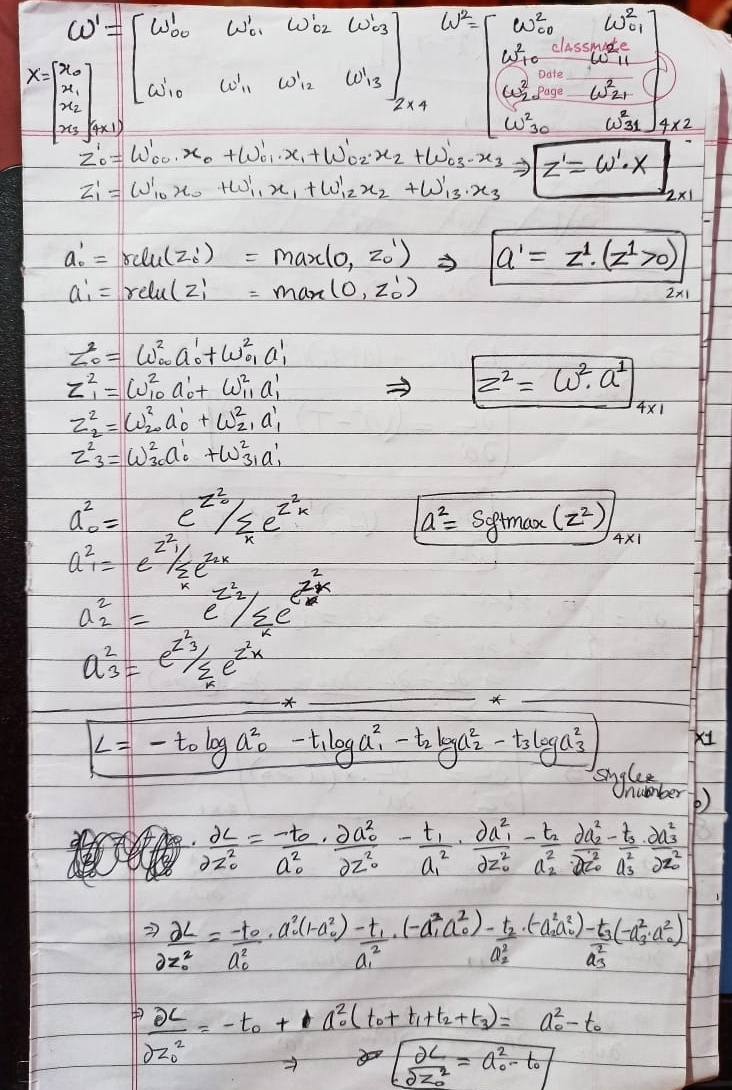 ω¹ = [ω¹₀₀ ω¹₀₁ ω¹₀₂ ω¹₀₃ ω² = [ω²₀₀ ω²₀₁
classmate
ω²₁₀ ω²₁₁
X = [x₀
x₁
x₂
x₃](4x1)
ω¹₁₀ ω¹₁₁ ω¹₁₂ ω¹₁₃] 2x4
Date
Page
ω²₂₀ ω²₂₁
ω²₃₀ ω²₃₁] 4x2
z¹₀ = ω¹₀₀.x₀ + ω¹₀₁.x₁ + ω¹₀₂.x₂ + ω¹₀₃.x₃ ⇒ z¹ = ω¹.X
z¹₁ = ω¹₁₀x₀ + ω¹₁₁x₁ + ω¹₁₂x₂ + ω¹₁₃.x₃ 2x1
a¹₀ = relu(z¹₀) = max(0, z₀¹) ⇒ a¹ = z¹.(z¹>0)
a¹₁ = relu(z¹₁ = max(0, z¹₀) 2x1
z²₀ = ω²₀₀a¹₀ + ω²₀₁a¹₁
z²₁ = ω²₁₀a¹₀ + ω²₁₁a¹₁ ⇒ z² = ω².a¹
z²₂ = ω²₂₀a¹₀ + ω²₂₁a¹₁ 4x1
z²₃ = ω²₃₀a¹₀ + ω²₃₁a¹₁
a²₀ = e^z²₀ / Σₖ e^z²ₖ a² = Softmax(z²) 4x1
a²₁ = e^z²₁ / Σₖ e^z2ₖ
a²₂ = e^z²₂ / Σₖ e^z²ₖ
a²₃ = e^z²₃ / Σₖ e^z²ₖ
L = -t₀ log a²₀ - t₁ log a²₁ - t₂ log a²₂ - t₃ log a²₃ x1
number
. ∂L/∂z²₀ = -t₀/a²₀ . ∂a²₀/∂z²₀ - t₁/a₁² . ∂a²₁/∂z²₀ - t₂/a²₂ ∂a²₂/∂z²₀ - t₃/a²₃ . ∂a²₃/∂z²₀
⇒ ∂L/∂z₀² = -t₀/a²₀ . a²₀(1-a²₀) - t₁/a₁² . (-a²₁a²₀) - t₂/a²₂ . (-a²₂a²₀) - t₃/a²₃ (-a²₃.a²₀)
⇒ ∂L/∂z₀² = -t₀ + a²₀(t₀ + t₁ + t₂ + t₃) = a²₀ - t₀
⇒ ∂L/∂z²₀ = a²₀ - t₀